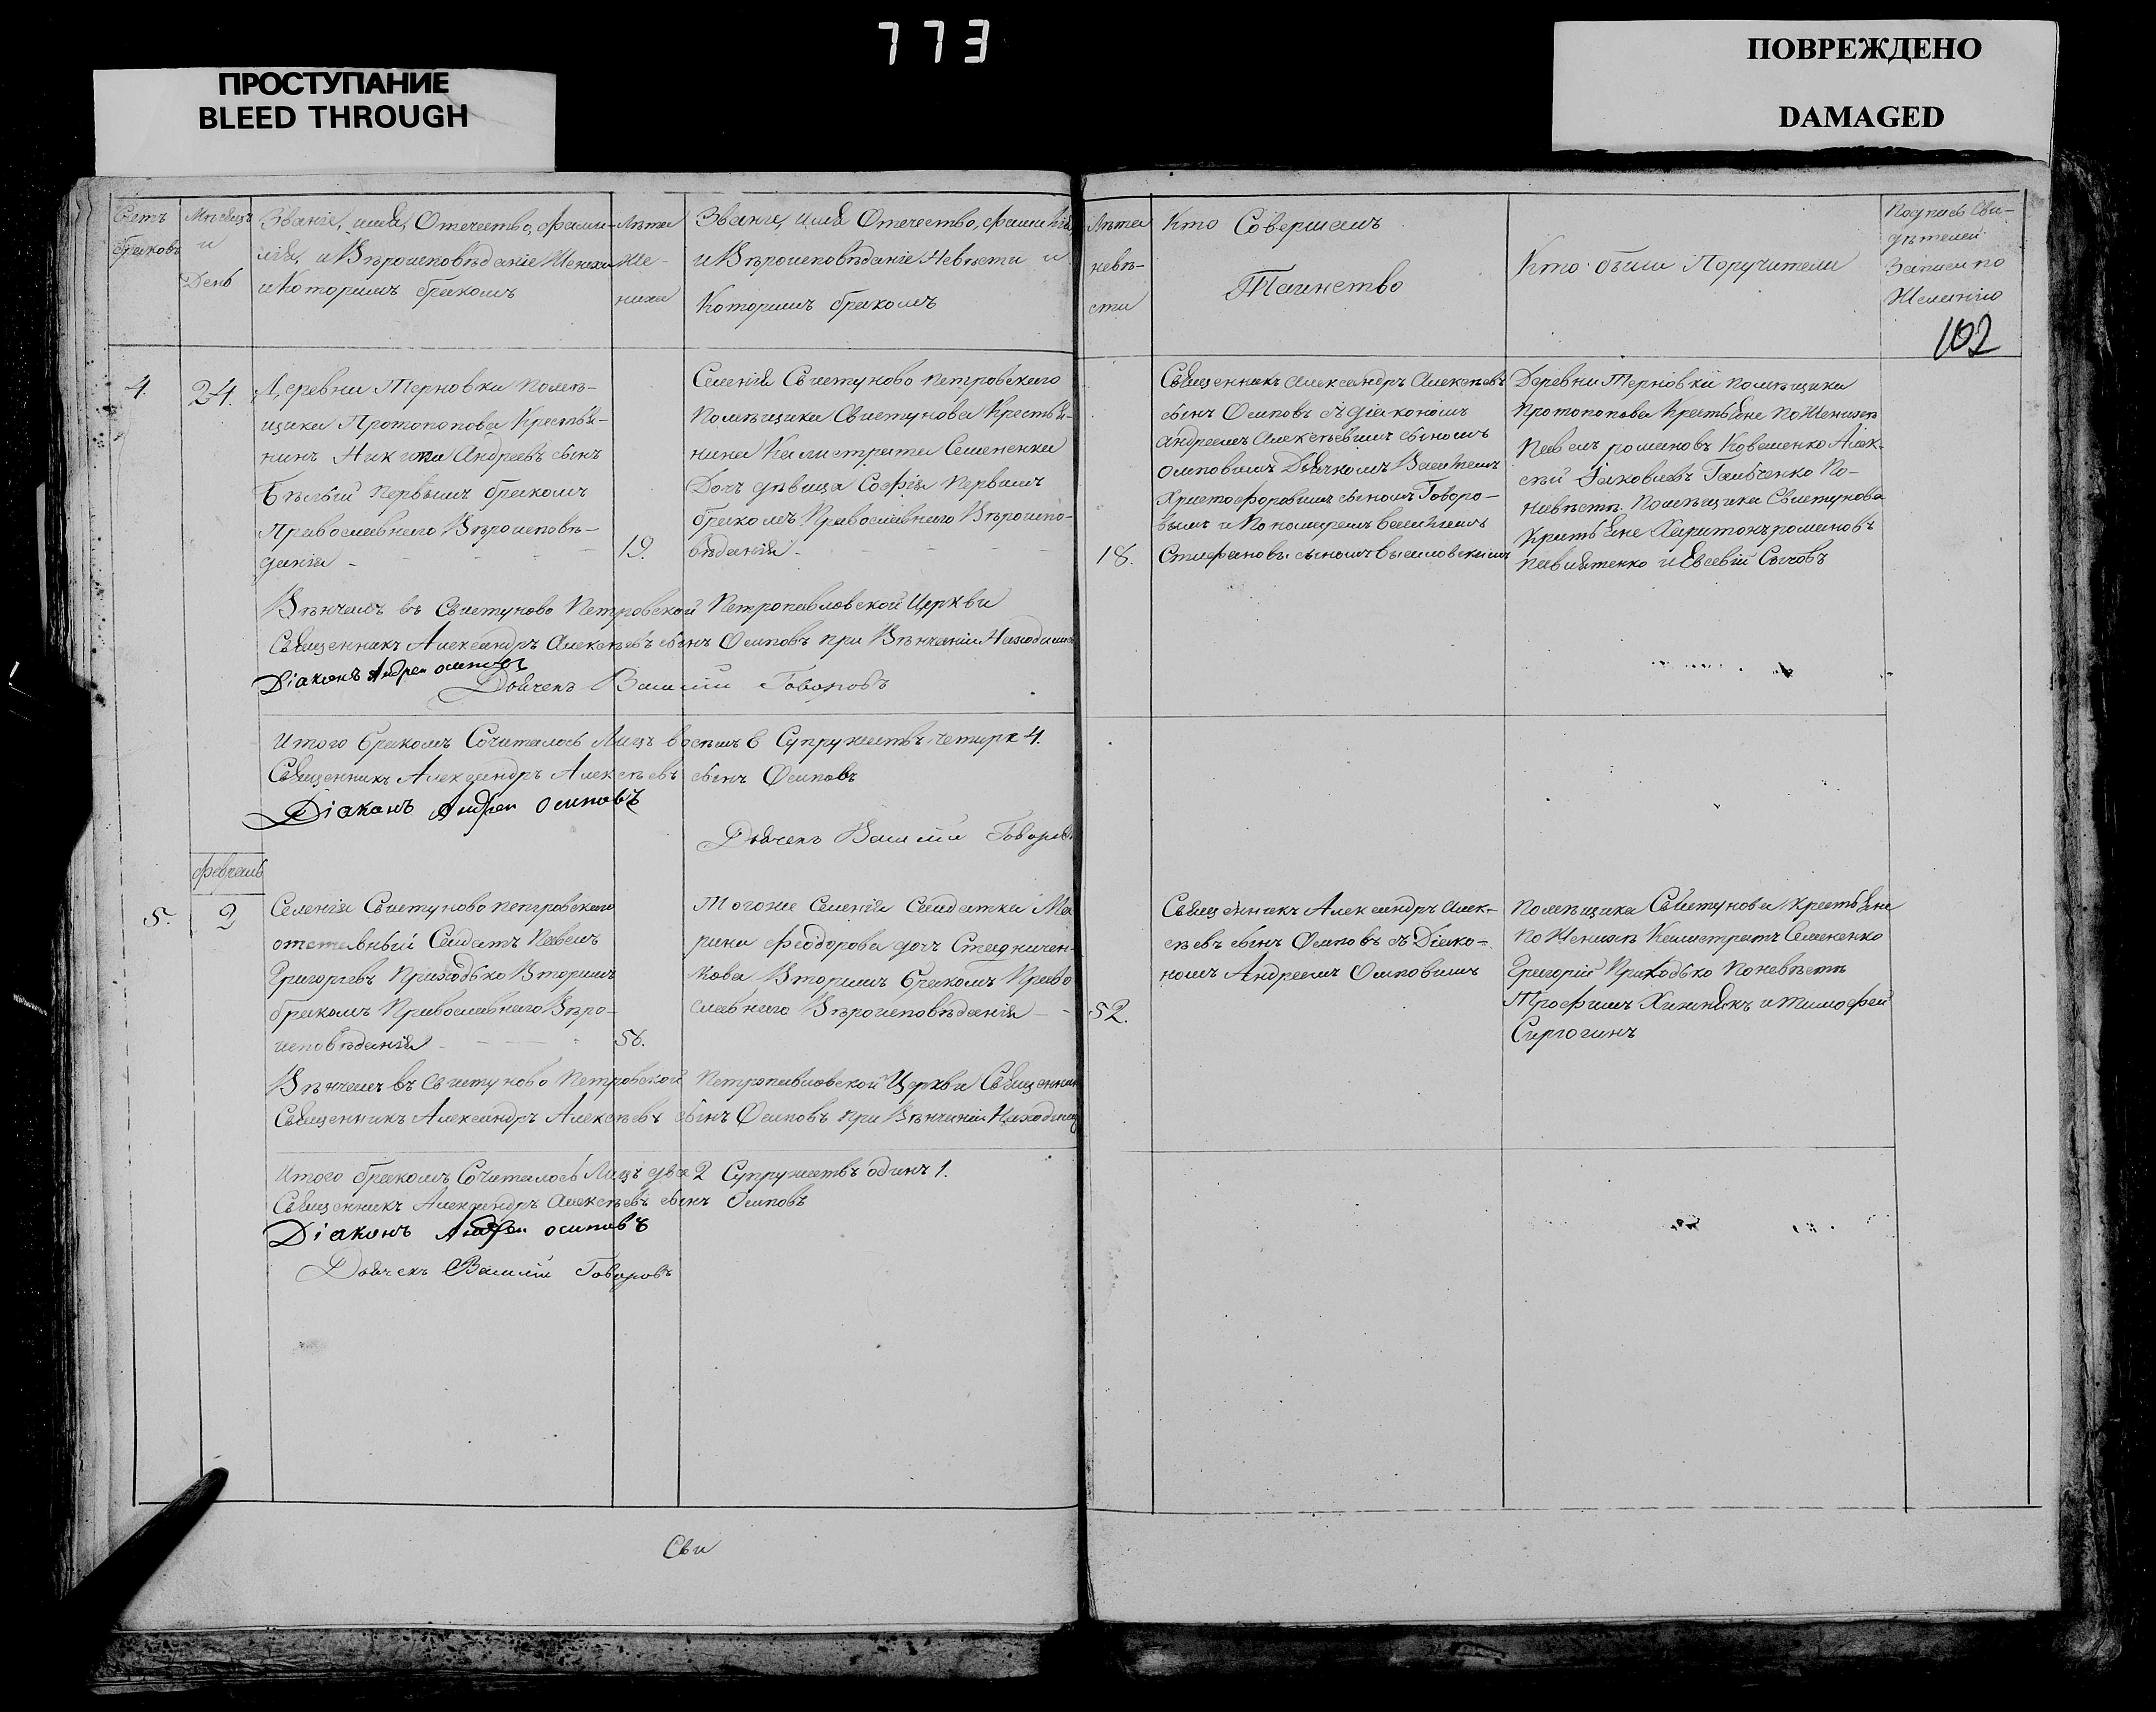 773
ПРОСТУПАНИЕ
BLEED THROUGH
ПОВРЕЖДЕНО
DAMAGED
Счетъ
браковъ
Мѣсяцъ
и
День
Званіе, имя, Отечество, фами-
лія, и Вѣроисповѣданіе Жениха
и Которимъ бракомъ
Лѣта
Же-
ниха
Званіе, имя Отечество, фамилія,
и Вѣроисповѣданіе Невѣсти и
Которимъ бракомъ
Лѣта
невѣ-
сти
Кто Совершалъ
Таинство
Кто били Поручители
Подпись Сви-
дѣтелей
Записи по
Желанію
102
4.
24.
Деревни Терновки Помѣ-
щика Протопопова Крестья-
нинъ Никита Андреевъ сынъ
Бѣлый первымъ бракомъ
Православнаго Вѣроисповѣ-
данія -
19.
Селенія Свистуново Петровского
Помѣщика Свистунова Крестья-
нина Калистрата Семененка
Дочъ дѣвица Софія Первимъ
бракомъ Православнаго Вѣроиспо-
вѣданія -
18.
Священникъ Александръ Алексѣевъ
сынъ Осиповъ съ діакономъ
Андреемъ Алексѣевимъ сыномъ
Осиповимъ Дьячкомъ Василіемъ
Христофоровимъ сыномъ Говоро-
вымъ и Пономаремъ Василіемъ
Стефановъ сыномъ Висиловскимъ
Деревни Терновки помѣщика
Протопопова Крестьяне По Женихѣ
Павелъ романовъ Коваленко Алек-
сѣй Яковлевъ По-
Невѣстѣ Помѣщика Свистунова
Харитонъ романовъ
и Евсевій Сычовъ
Вѣнчалъ въ Свистуново Петровской Петропавловской Церкви
Священникъ Александръ Алексѣевъ сынъ Осиповъ при Вѣнчаніи Находились
Діаконъ Андрей осиповъ
Дьячекъ Василій Говоровъ
Итого бракомъ Сочиталось Лицъ восемъ 8 Супружествъ четире 4.
Священникъ Александръ Алексѣевъ сынъ Осиповъ
Діаконъ Андрей осиповъ
Дьячекъ Василій Говоровъ
февраль
5.
2
Селенія Свистуново петровского
отставный Салдатъ Павелъ
Григорьевъ Приходько Вторимъ
бракомъ Православнаго Вѣро-
исповѣданія
56.
Тогоже Селенія Салдатка Ма
рина Феодорова дочъ Стадничен-
кова Вторимъ бракомъ Право
славнаго Вѣроисповѣданія -
52.
Священникъ Александръ Алек-
сѣевъ сынъ Осиповъ съ Діако-
номъ Андреемъ Осиповимъ
Помѣщика Свистунова Крестьяне
По Женихѣ Калистратъ Семененко
Григорій Приходько По невѣстѣ
Трофимъ Хижнякъ и Тимофей
Вѣнчалъ въ Свистуново Петровской Петропавловской Церкви Священник
Священникъ Александръ Алексѣевъ сынъ Осиповъ при Вѣнчаніи Находились
Итого бракомъ Сочиталось Лицъ два 2 Супружествъ одинъ 1.
Священникъ Александръ Алексѣевъ сынъ Осиповъ
Діаконъ Андрей осиповъ
Дьячекъ Василій Говоровъ
Сви